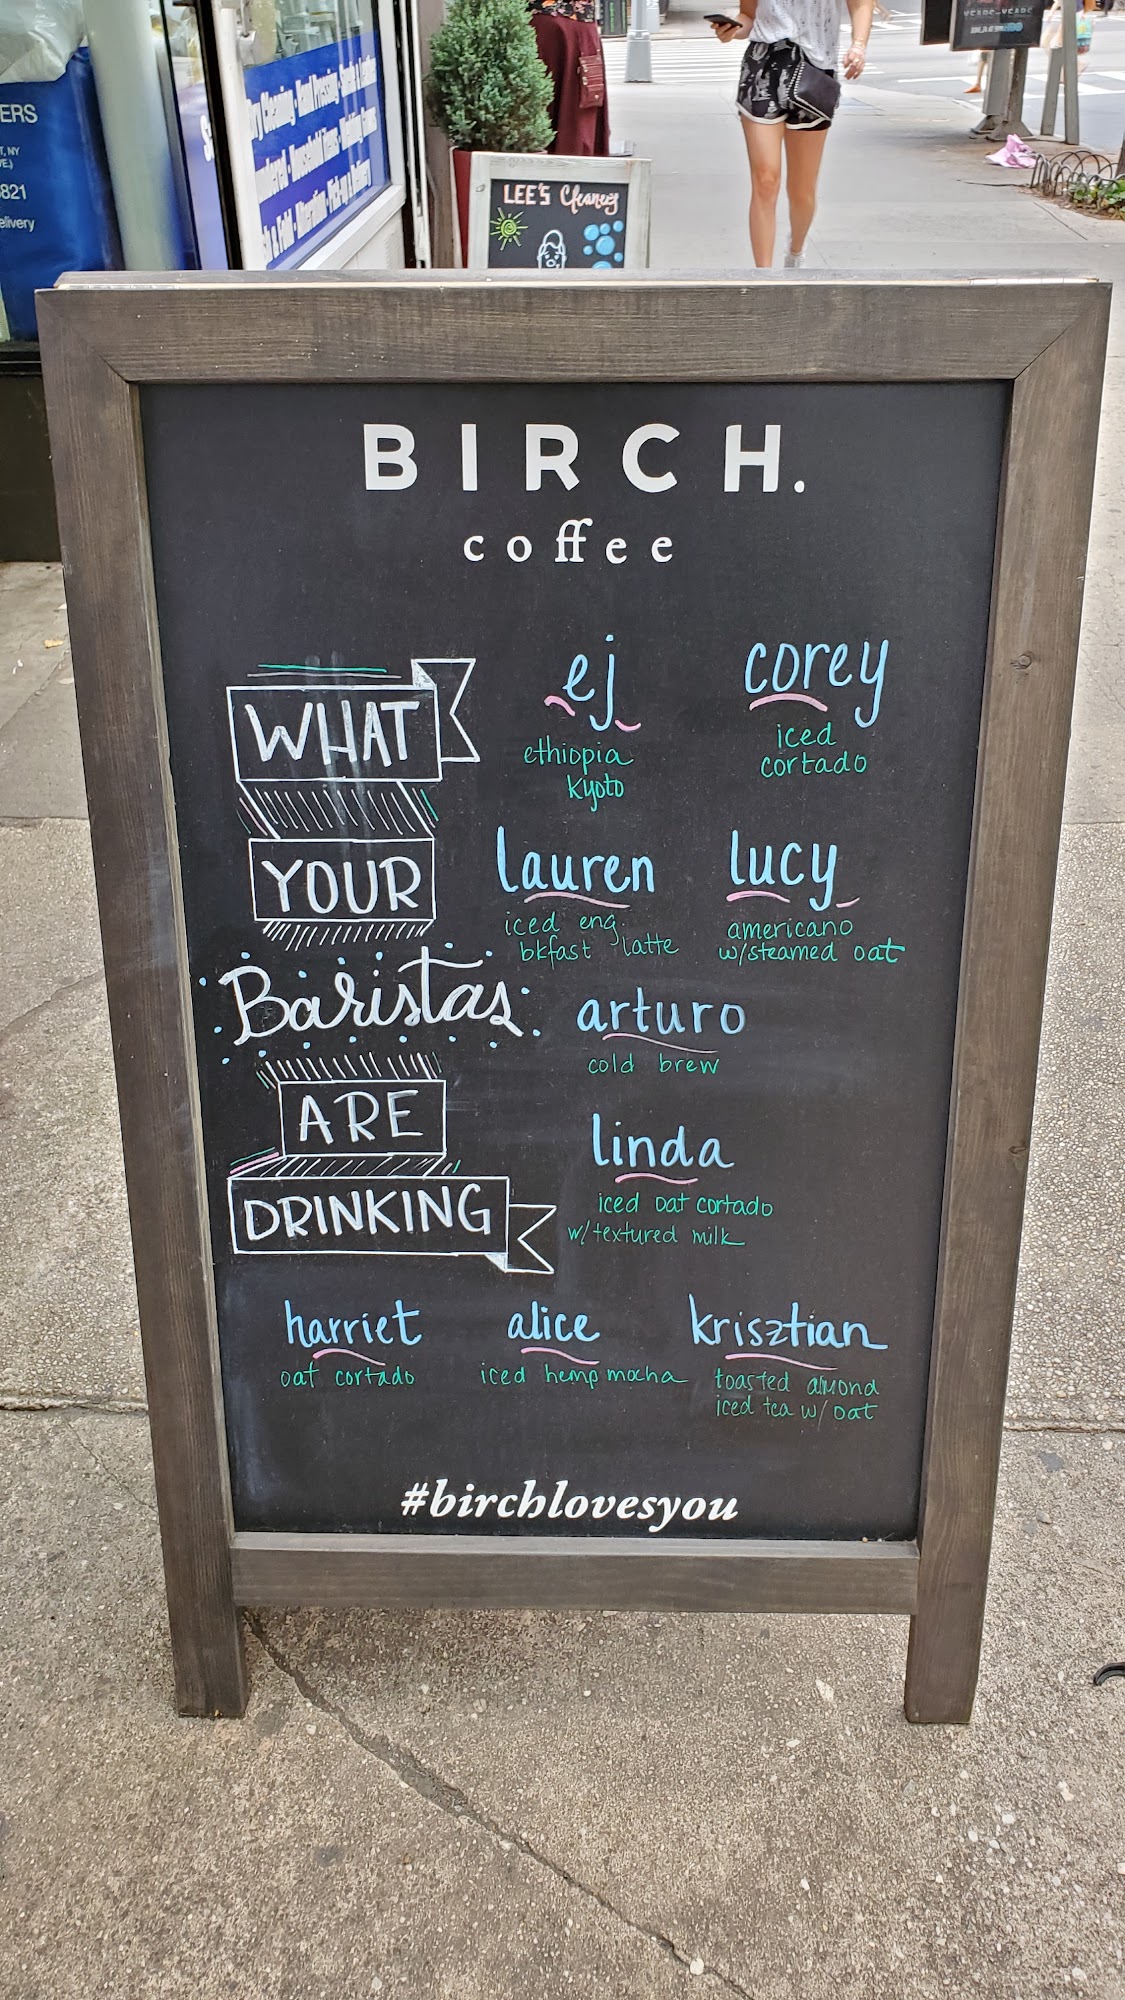 ERS
T, NY
VE.)
8821
elivery
Dry Cleaning • Hand Pressing • Suede & Leather
Laundered • Household Items • Wedding Gowns
Wash & Fold • Alteration • Pick-up & Delivery
LEE'S Cleaners
BIRCH.
coffee
WHAT
YOUR
Baristas
ARE
DRINKING
ej
ethiopia
kyoto
corey
iced
cortado
lauren
iced eng.
bkfast latte
lucy
americano
w/steamed oat
arturo
cold brew
linda
iced oat cortado
w/textured milk
harriet
oat cortado
alice
iced hemp mocha
krisztian
toasted almond
iced tea w/ oat
#birchlovesyou